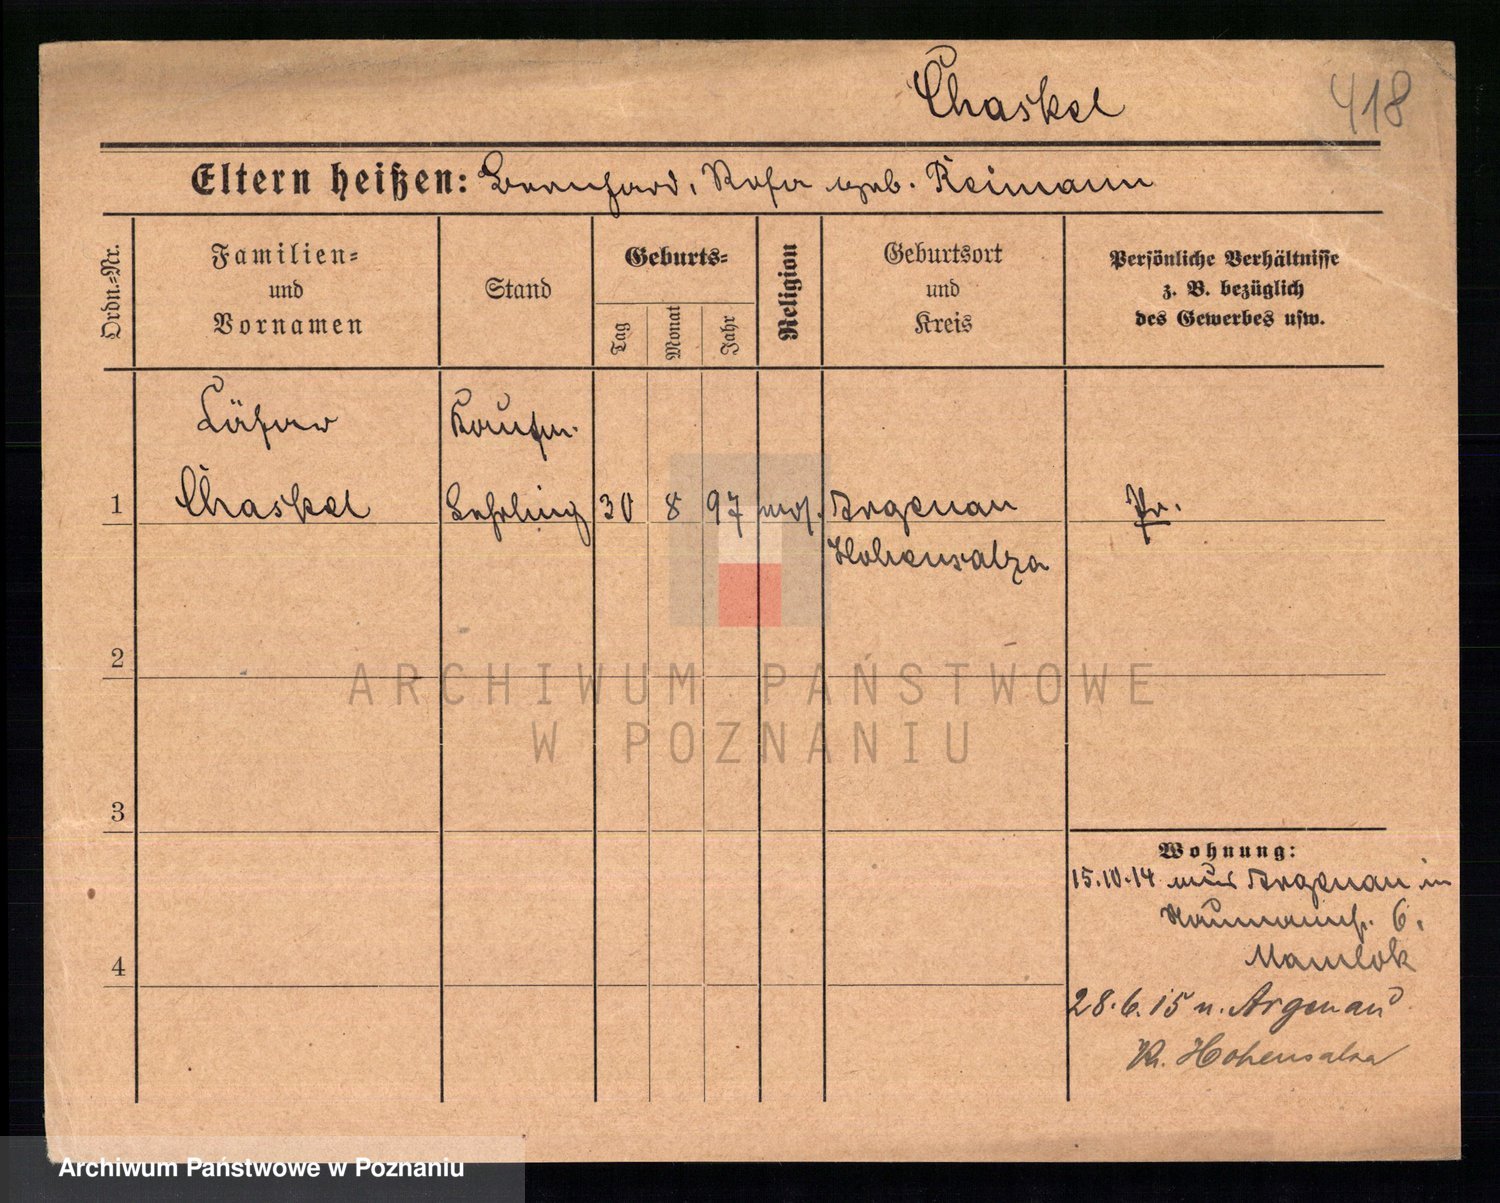 Chaskel
418
Eltern heißen: Bernhard, Rosa geb. Reimann
Ordn.=Nr.
Familien=
und
Vornamen
Stand
Geburts=
Tag
Monat
Jahr
Religion
Geburtsort
und
Kreis
Persönliche Verhältnisse
z. B. bezüglich
des Gewerbes usw.
Cäsar
Kaufm.
1
Chaskel
Lehrling
30
8
97
mos.
Argenau
Pr.
Hohensalza
2
ARCHIWUM PAŃSTWOWE
W POZNANIU
3
Wohnung:
15.10.14 aus Argenau in
Naumannstr. 6.
Mamlok
4
28.6.15 n. Argenau
Kr. Hohensalza
Archiwum Państwowe w Poznaniu